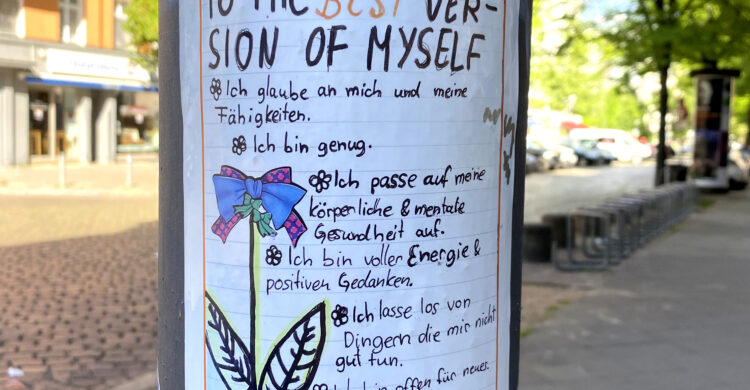 TO THE BEST VER-
SION OF MYSELF
Ich glaube an mich und meine
Fähigkeiten.
Ich bin genug.
Ich passe auf meine
körperliche & mentale
Gesundheit auf.
Ich bin voller Energie &
positiven Gedanken.
Ich lasse los von
Dingern die mir nicht
gut tun.
Ich bin offen für neues.